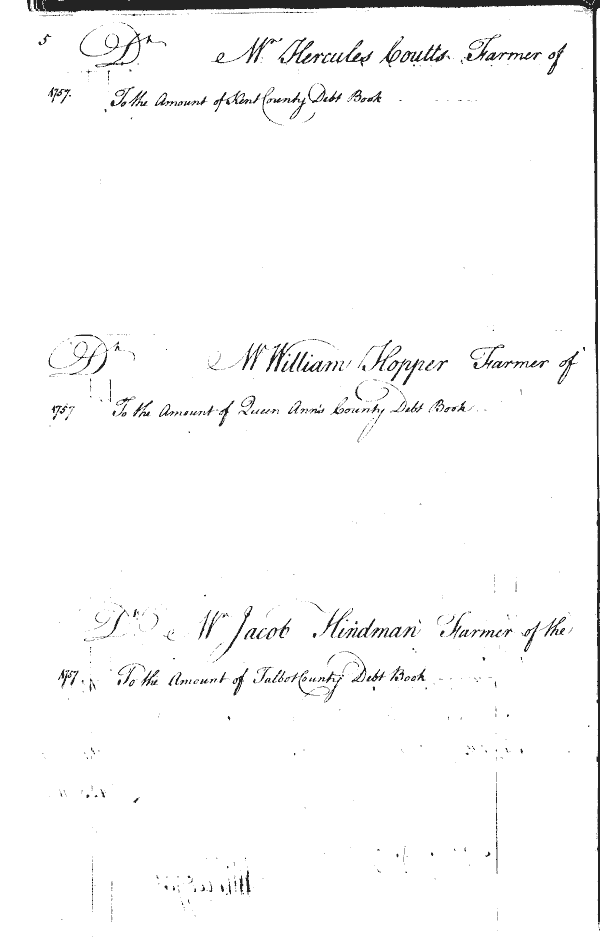 5 Dr Mr Hercules Coutts Farmer of
1757. To the Amount of Kent County Debt Book
Dr Mr William Hopper Farmer of
1757 To the Amount of Queen Ann's County Debt Book
Dr Mr Jacob Hindman Farmer of the
1757 To the Amount of Talbot County Debt Book